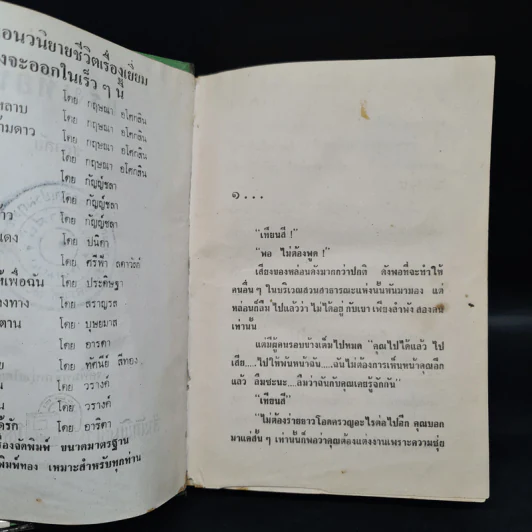 อนวนิยายชีวิตเรื่องเยี่ยม
งจะออกในเร็ว ๆ นี้
โดย กฤษณา อโศกสิน
หลาบ โดย กฤษณา อโศกสิน
้ามดาว โดย กฤษณา อโศกสิน
โดย กัญญ์ชลา
โดย กัญญ์ชลา
โดย กัญญ์ชลา
าว โดย ปนิตา
แดง โดย ศรีฟ้า ลดาวัลย์
ห้เพื่อฉัน โดย ประดิษฐา
งทาง โดย สราญรส
ตาน โดย บุษยมาส
โดย อาริตา
ย โดย ทัศนีย์ สีทอง
น โดย วรางค์
น โดย วรางค์
ด้รัก โดย อาริตา
องจัดพิมพ์ ขนาดมาตรฐาน
พิมพ์ทอง เหมาะสำหรับทุกท่าน
๑...
"เทียนสี !"
"พอ ไม่ต้องพูด !"
เสียงของหล่อนดังมากกว่าปกติ ดังพอที่จะทำให้
คนอื่น ๆ ในบริเวณสวนสาธารณะแห่งนั้นหันมามอง แต่
หล่อนก็ลืมไปแล้วว่า ไม่ได้อยู่กับเขาเพียงลำพังสองคน
เท่านั้น
แต่มีผู้คนรอบข้างเต็มไปหมด "คุณไปได้แล้ว ไป
เสีย....ไปให้พ้นหน้าฉัน.....ฉันไม่ต้องการเห็นหน้าคุณอีก
แล้ว ลืมซะนะ....ลืมว่าฉันกับคุณเคยรู้จักกัน"
"เทียนสี"
"ไม่ต้องร่ายยาวโอดครวญอะไรต่อไปอีก คุณบอก
มาแค่สั้น ๆ เท่านั้นก็พอว่าคุณต้องแต่งงานเพราะความซุ่ย